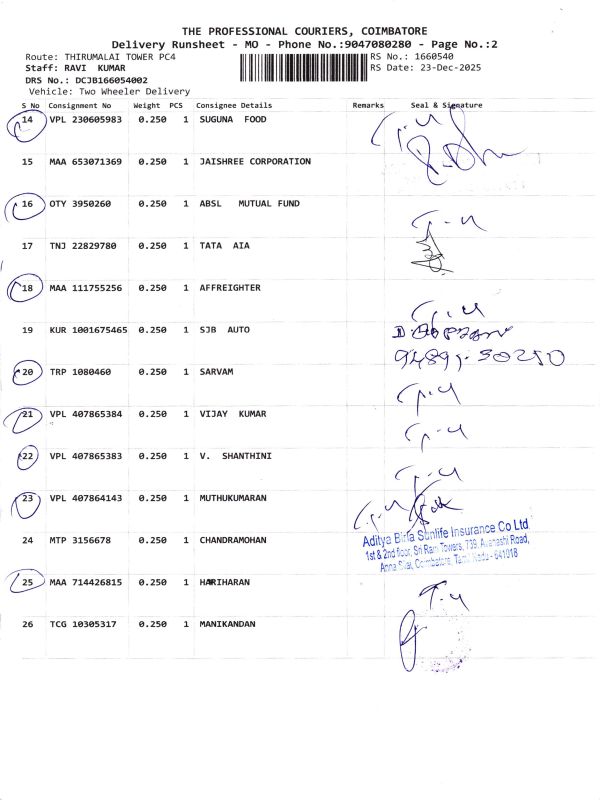 THE PROFESSIONAL COURIERS, COIMBATORE
Delivery Runsheet - MO - Phone No.:9047080280 - Page No.:2
Route: THIRUMALAI TOWER PC4
RS No.: 1660540
Staff: RAVI KUMAR
RS Date: 23-Dec-2025
DRS No.: DCJB166054002
Vehicle: Two Wheeler Delivery
S No Consignment No Weight PCS Consignee Details Remarks Seal & Signature
14 VPL 230605983 0.250 1 SUGUNA FOOD
15 MAA 653071369 0.250 1 JAISHREE CORPORATION
16 OTY 3950260 0.250 1 ABSL MUTUAL FUND
17 TNJ 22829780 0.250 1 TATA AIA
18 MAA 111755256 0.250 1 AFFREIGHTER
19 KUR 1001675465 0.250 1 SJB AUTO
20 TRP 1080460 0.250 1 SARVAM
21 VPL 407865384 0.250 1 VIJAY KUMAR
22 VPL 407865383 0.250 1 V. SHANTHINI
23 VPL 407864143 0.250 1 MUTHUKUMARAN
Aditya Birla Sunlife Insurance Co Ltd
1st & 2nd floor, Sri Ram Towers, 739, Avanashi Road,
Anna Silai, Coimbatore, Tamil Nadu - 641018
24 MTP 3156678 0.250 1 CHANDRAMOHAN
25 MAA 714426815 0.250 1 HARIHARAN
26 TCG 10305317 0.250 1 MANIKANDAN